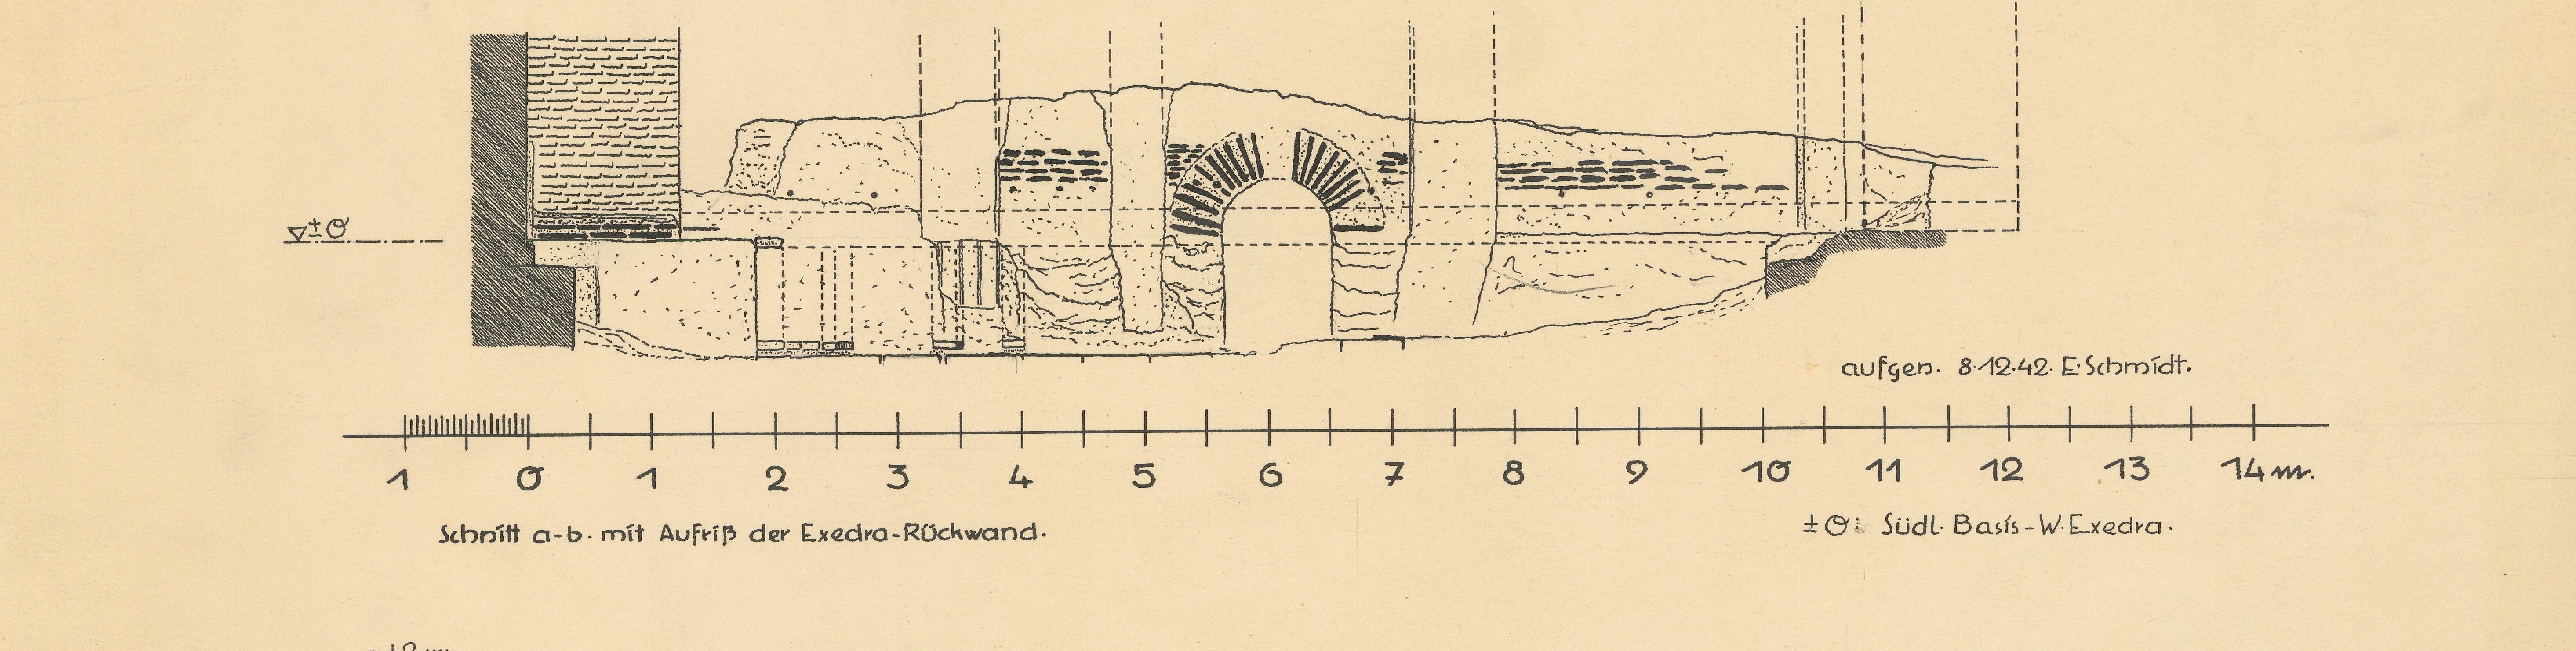 ▽±0
aufgen. 8.12.42. E.Schmidt.
1 0 1 2 3 4 5 6 7 8 9 10 11 12 13 14 m.
Schnitt a-b. mit Aufriß der Exedra-Rückwand.
±0: Südl. Basis-W.Exedra.